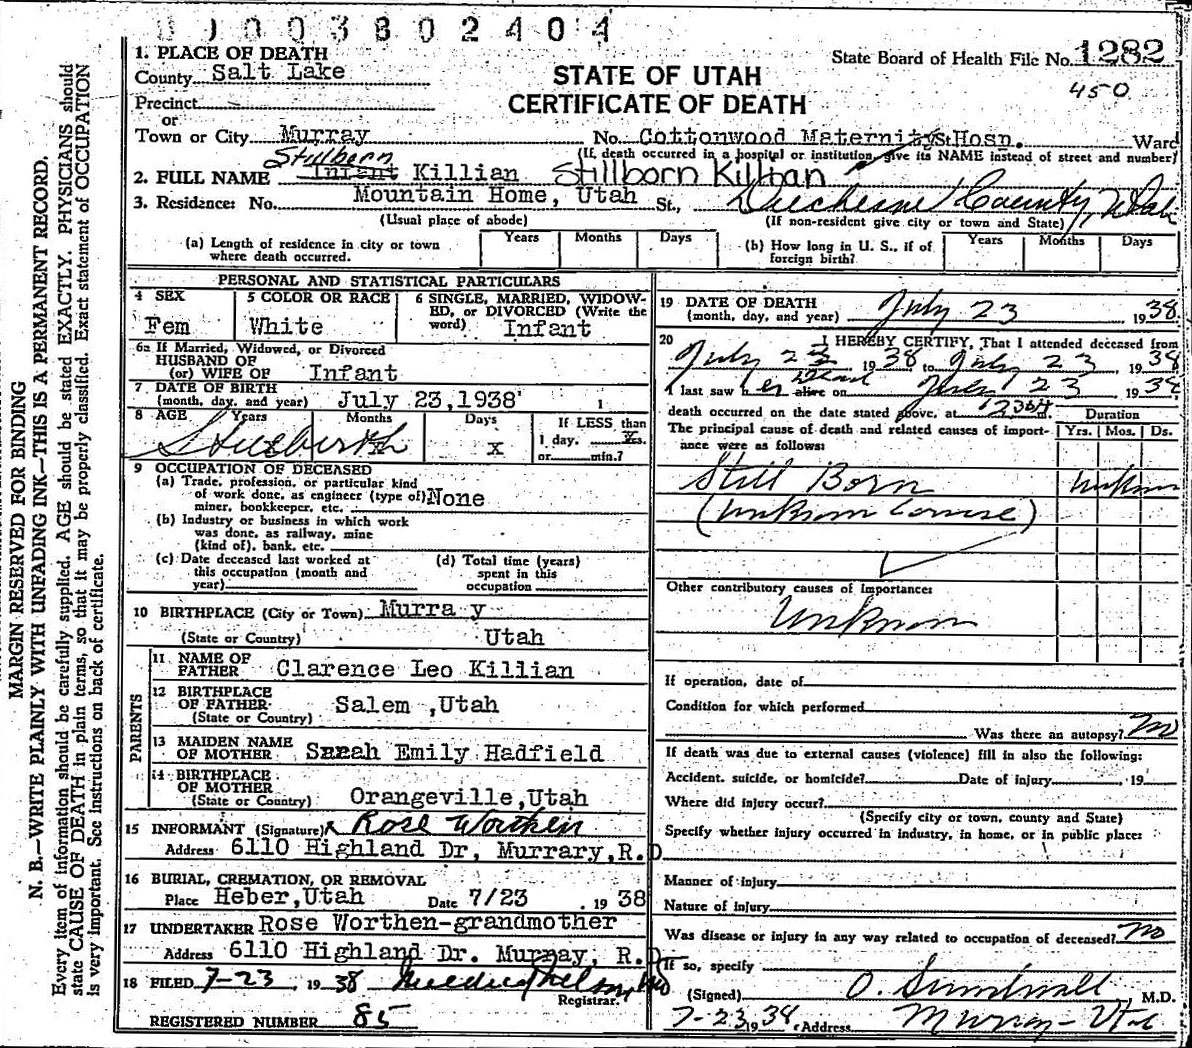 003802404
1. PLACE OF DEATH
County Salt Lake
State Board of Health File No. 1282
450
STATE OF UTAH
CERTIFICATE OF DEATH
Precinct
or
Town or City Murray No. Cottonwood Maternity St. Hosp. Ward
(If death occurred in a hospital or institution, give its NAME instead of street and number)
Stillborn
2. FULL NAME Infant Killian Stillborn Killian
3. Residence: No. Mountain Home, Utah St., Duchesne County, Utah
(Usual place of abode) (If non-resident give city or town and State)
(a) Length of residence in city or town where death occurred. Years Months Days
(b) How long in U. S., if of foreign birth? Years Months Days
PERSONAL AND STATISTICAL PARTICULARS
4 SEX Fem
5 COLOR OR RACE White
6 SINGLE, MARRIED, WIDOWED, or DIVORCED (Write the word) Infant
6a If Married, Widowed, or Divorced
HUSBAND OF
(or) WIFE OF Infant
7 DATE OF BIRTH
(month, day, and year) July 23,1938
8 AGE Years Months Days If LESS than
Stillbirth X 1 day, hrs.
or min.?
9 OCCUPATION OF DECEASED
(a) Trade, profession, or particular kind
of work done, as engineer (type of) None
miner, bookkeeper, etc.
(b) Industry or business in which work
was done, as railway, mine
(kind of), bank, etc.
(c) Date deceased last worked at
this occupation (month and
year)
(d) Total time (years)
spent in this
occupation
10 BIRTHPLACE (City or Town) Murra y
(State or Country) Utah
PARENTS
11 NAME OF
FATHER Clarence Leo Killian
12 BIRTHPLACE
OF FATHER Salem ,Utah
(State or Country)
13 MAIDEN NAME
OF MOTHER Sarah Emily Hadfield
14 BIRTHPLACE
OF MOTHER
(State or Country) Orangeville,Utah
15 INFORMANT (Signature) x Rose Worthen
Address 6110 Highland Dr, Murrary,R.D
16 BURIAL, CREMATION, OR REMOVAL
Place Heber,Utah Date 7/23 , 19 38
17 UNDERTAKER Rose Worthen-grandmother
Address 6110 Highland Dr. Murray, R.D
18 FILED 7-23, 19 38
Registrar.
REGISTERED NUMBER 85
19 DATE OF DEATH
(month, day, and year) July 23 1938.
20 I HEREBY CERTIFY, That I attended deceased from
July 23 1938 to July 23, 1938
I last saw her dead alive on July 23, 1938
death occurred on the date stated above, at m.
Duration
The principal cause of death and related causes of importance were as follows: Yrs. Mos. Ds.
Still Born Unknown
(Unknown Cause)
Other contributory causes of importance:
Unknown
If operation, date of
Condition for which performed
Was there an autopsy? No
If death was due to external causes (violence) fill in also the following:
Accident, suicide, or homicide? Date of injury , 19
Where did injury occur?
(Specify city or town, county and State)
Specify whether injury occurred in industry, in home, or in public place:
Manner of injury
Nature of injury
Was disease or injury in any way related to occupation of deceased? No
If so, specify
(Signed) O. Sundwall, M.D.
7-23 1938, Address Murray - Utah
MARGIN RESERVED FOR BINDING
N. B.—WRITE PLAINLY WITH UNFADING INK—THIS IS A PERMANENT RECORD.
Every item of information should be carefully supplied. AGE should be stated EXACTLY. PHYSICIANS should
state CAUSE OF DEATH in plain terms, so that it may be properly classified. Exact statement of OCCUPATION
is very important. See instructions on back of certificate.